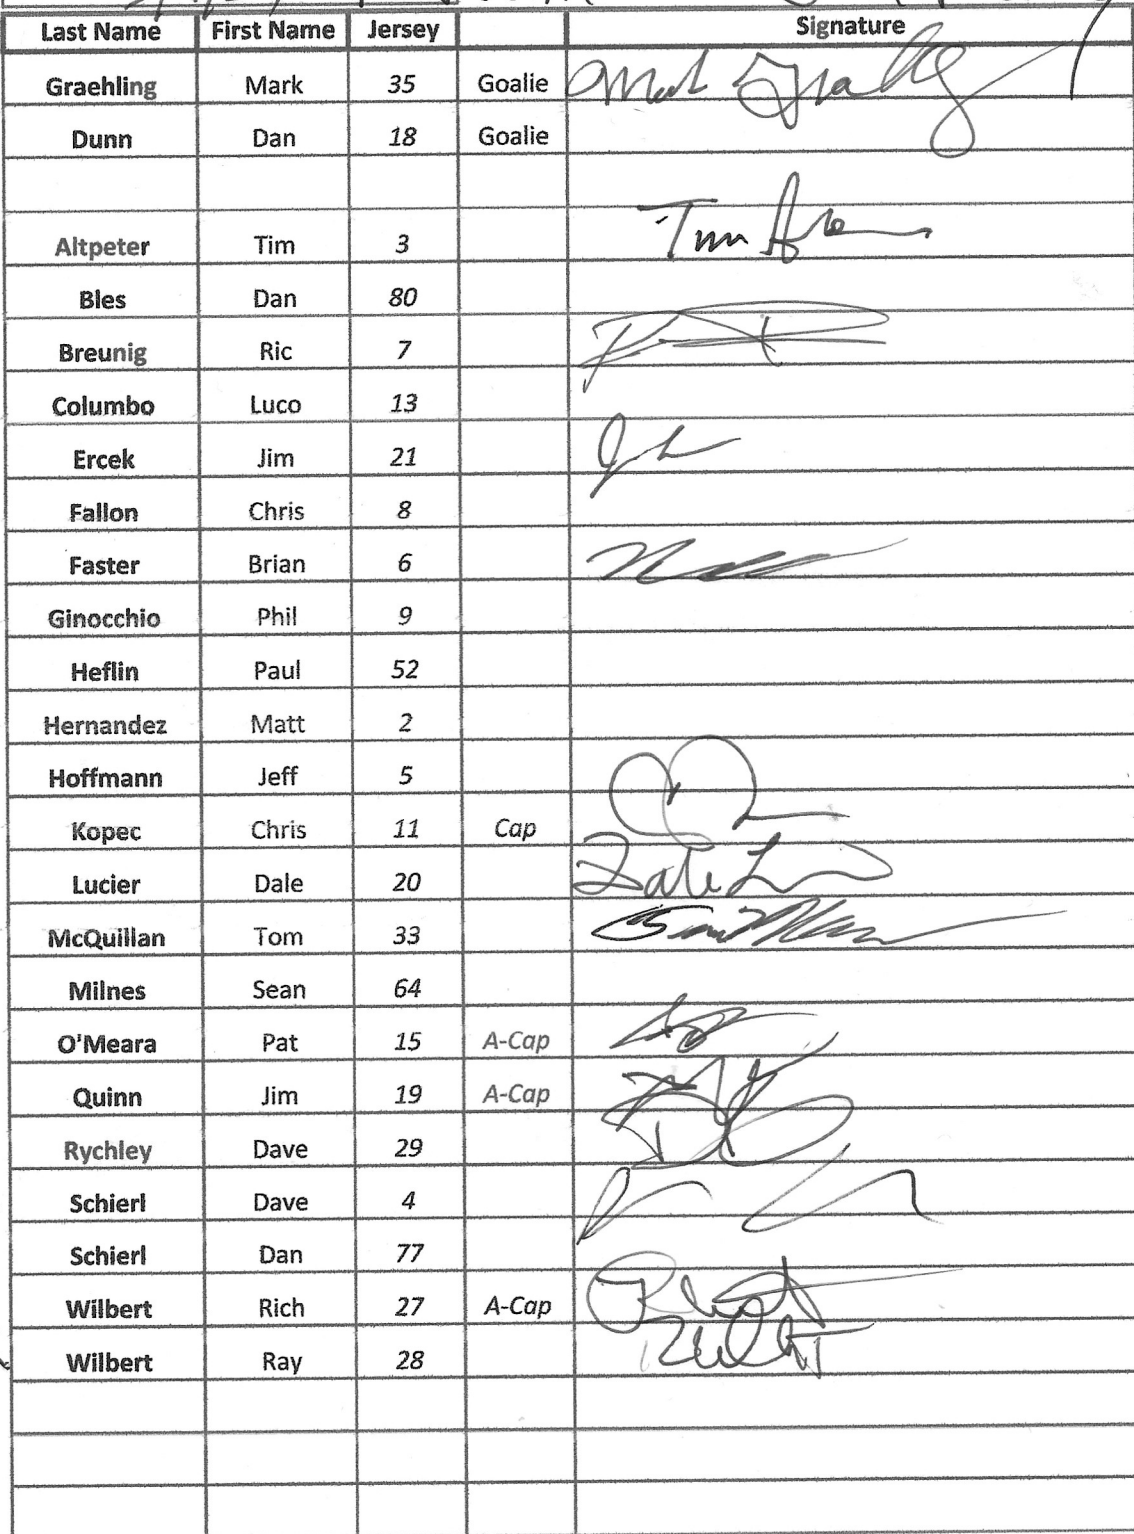 Last Name First Name Jersey Signature
Graehling Mark 35 Goalie Mark Graehling
Dunn Dan 18 Goalie
Altpeter Tim 3 Tim
Bles Dan 80
Breunig Ric 7
Columbo Luco 13
Ercek Jim 21
Fallon Chris 8
Faster Brian 6
Ginocchio Phil 9
Heflin Paul 52
Hernandez Matt 2
Hoffmann Jeff 5
Kopec Chris 11 Cap
Lucier Dale 20 Dale
McQuillan Tom 33
Milnes Sean 64
O'Meara Pat 15 A-Cap
Quinn Jim 19 A-Cap
Rychley Dave 29
Schierl Dave 4
Schierl Dan 77
Wilbert Rich 27 A-Cap
Wilbert Ray 28